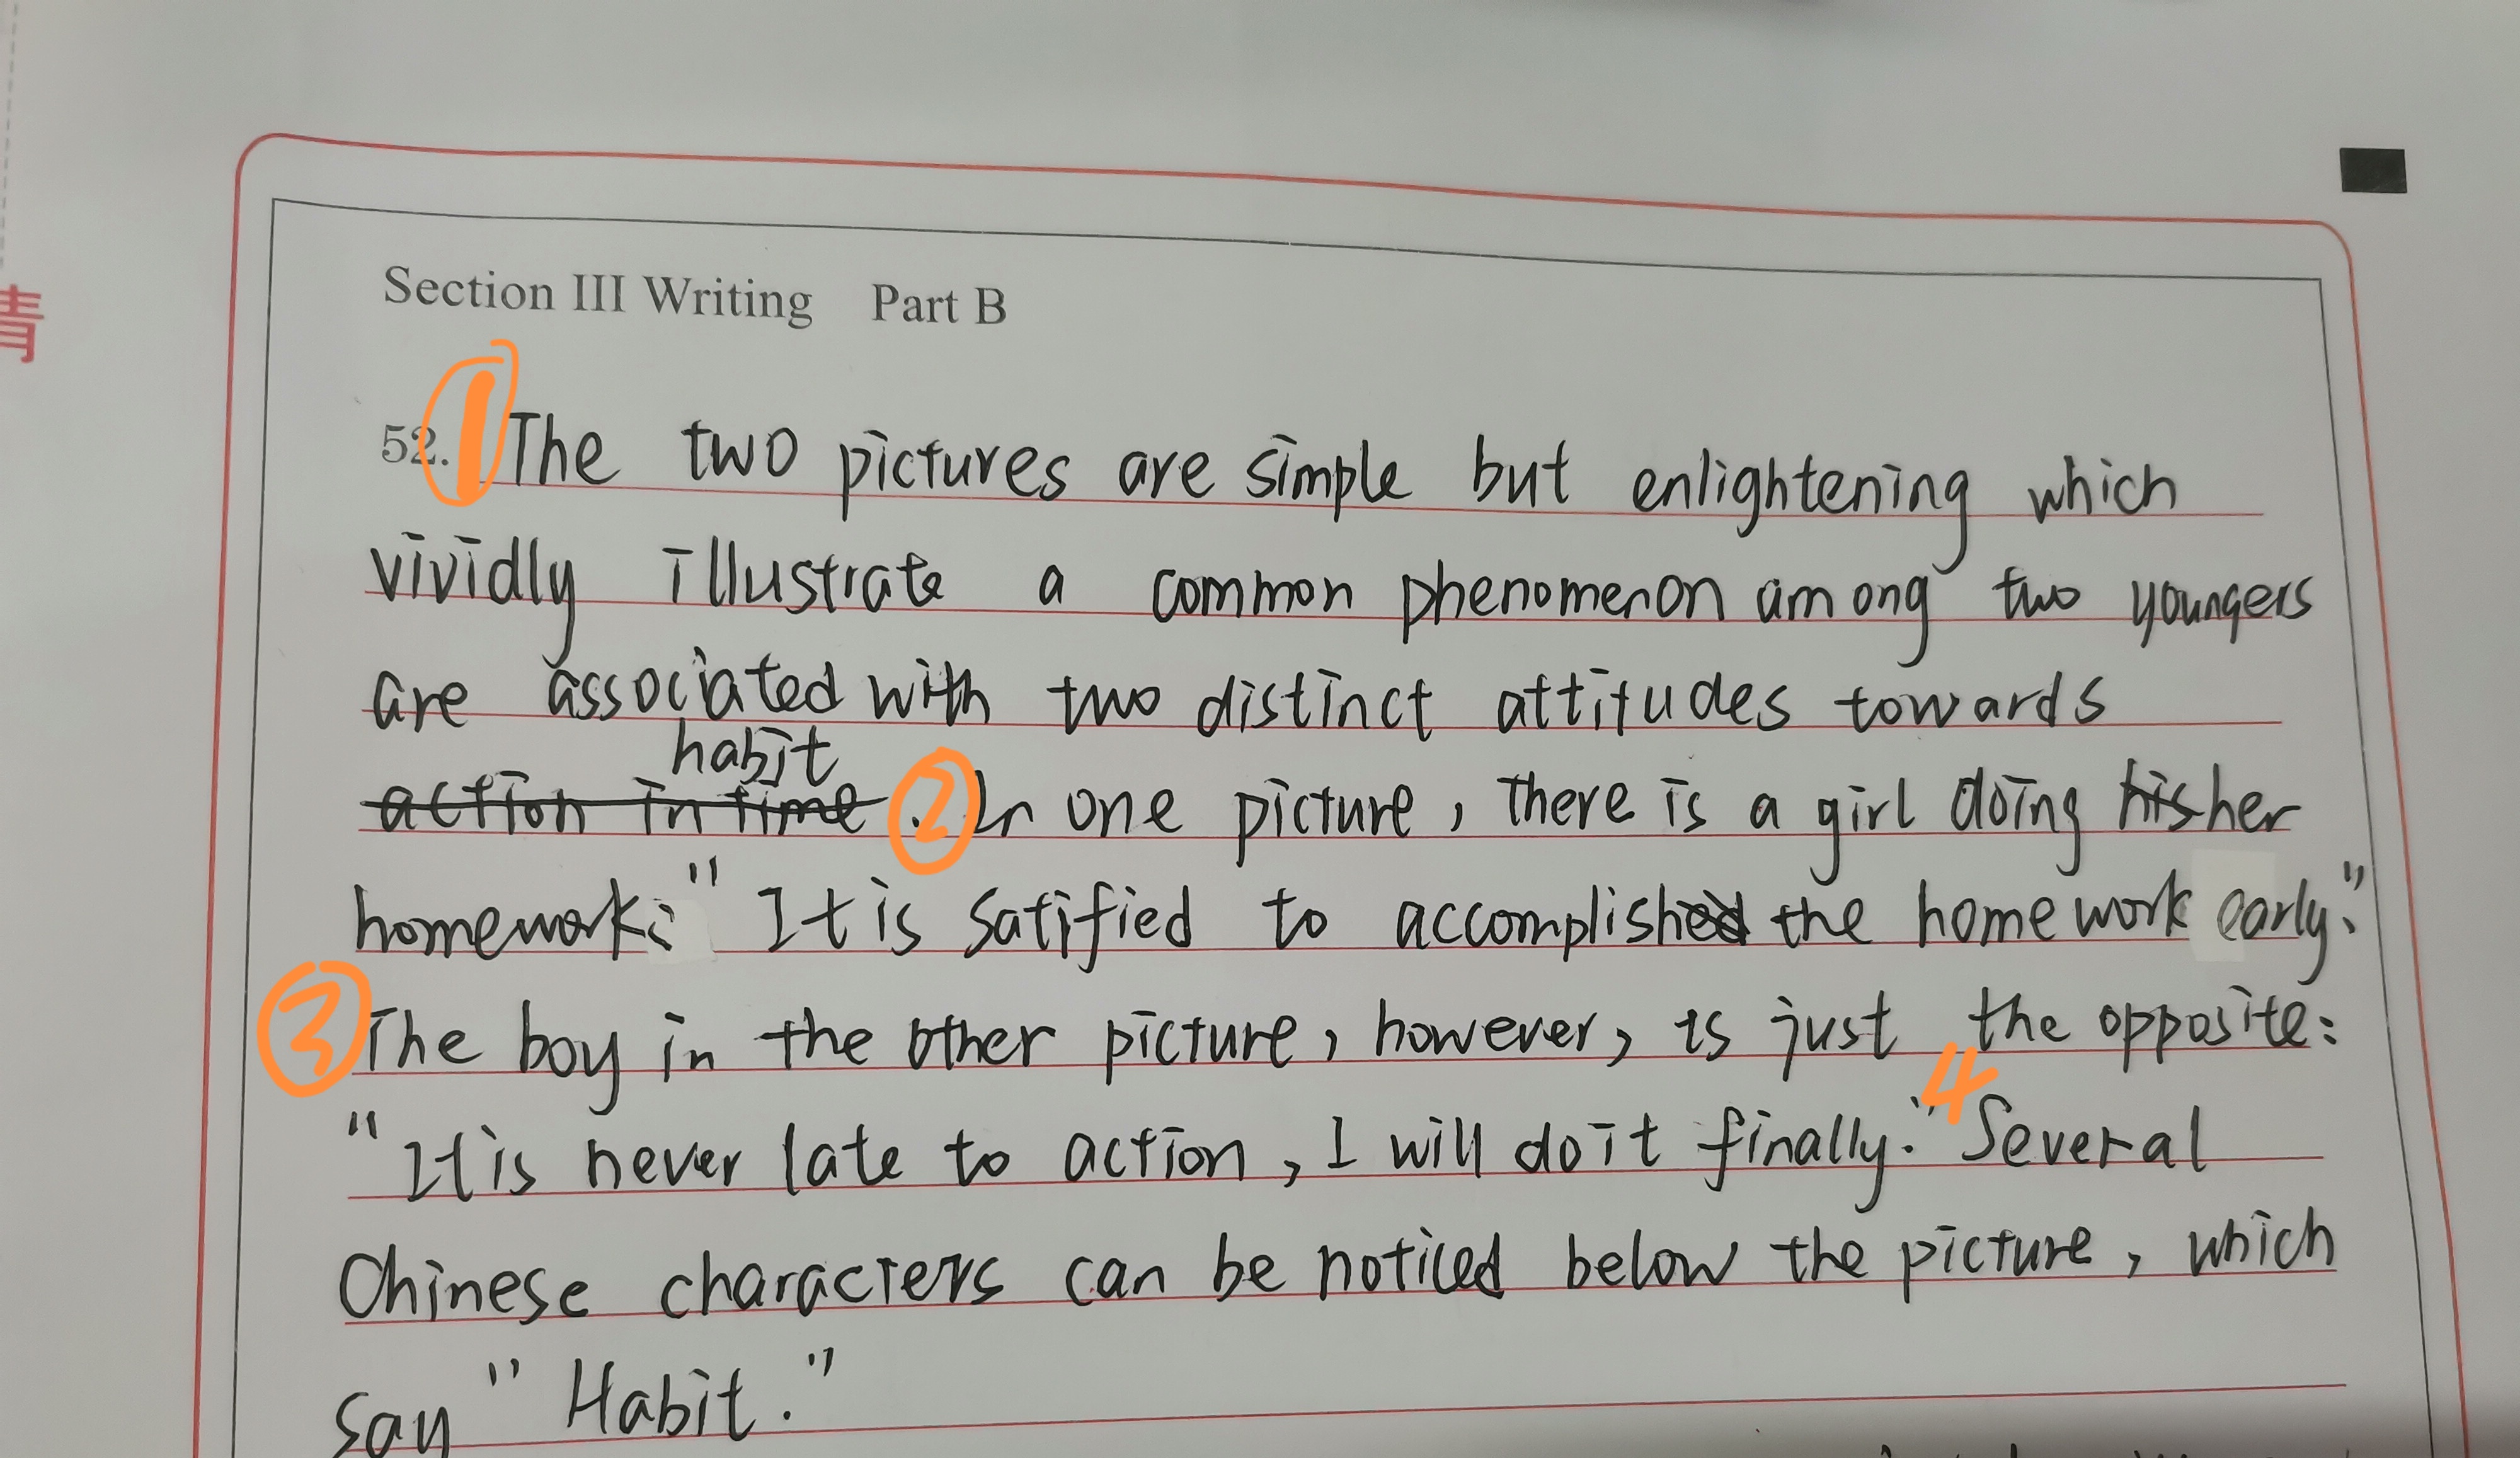 青
Section III Writing Part B
52. 1 The two pictures are simple but enlightening which
vividly illustrate a common phenomenon among two youngers
are associated with two distinct attitudes towards
habit
action in time. 2 In one picture, there is a girl doing his her
homework: "It is satified to accomplished the homework early."
3 The boy in the other picture, however, is just the opposite:
"It is never late to action, I will do it finally." 4 Several
Chinese characters can be noticed below the picture, which
say "Habit."